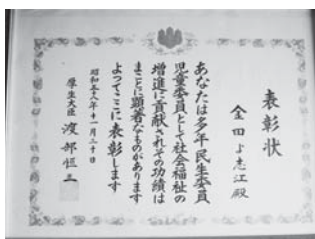 表彰状
金田よ志江殿
あなたは多年民生委員
児童委員として社会福祉の
増進に貢献されその功績は
まことに顕著なものがあります
よってここに表彰します
昭和五十八年十一月三十日
厚生大臣 渡部恒三